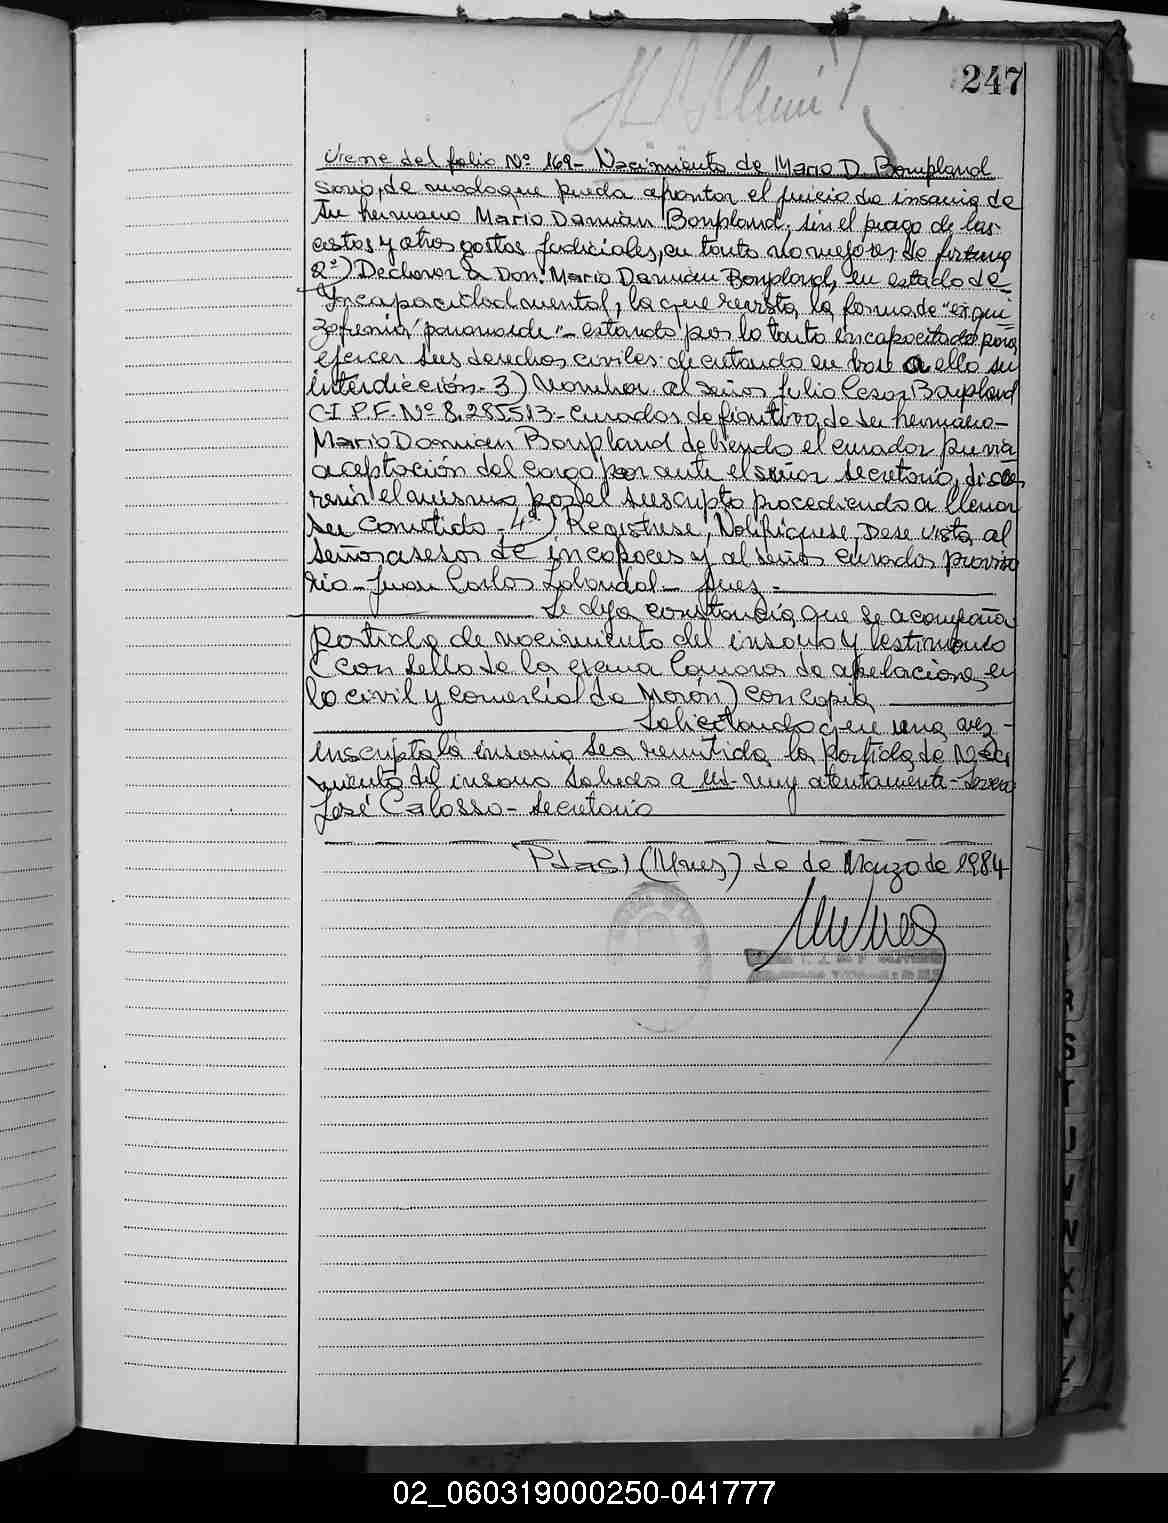 247
Viene del folio Nº 169- Nacimiento de Mario D. Bonpland
sario, de modo que pueda afrontar el juicio de insania de
su hermano Mario Damián Bonpland, sin el pago de las
costas y otros gastos judiciales, en tanto no mejores de fortuna
2º) Declarar a Don: Mario Damián Bonpland, en estado de
Incapacidad mental, la que revista la forma de "esqui-
zofrenia paranoide"- estando por lo tanto incapacitado para
ejercer sus derechos civiles: decretando en base a ello su
interdicción- 3) Nombrar al señor Julio Cesar Bonpland
C.I.P.F. Nº 8.285513- curador definitivo, de su hermano-
Mario Damian Bonpland debiendo el curador previa
aceptación del cargo por ante el señor Secretario, disce
rnir el mismo por el suscripto procediendo a llenar
su cometido- 4º) Registrese, Notifiquese, Dese vista al
Señor asesor de incapaces y al señor curador proviso
rio- Juan Carlos - Juez-
Se deja constancia que se acompaña
partida de nacimiento del insano y testimonio
(con sello de la Exma Camara de apelaciones en
lo civil y comercial de Morón) con copia
Solicitando que una vez-
inscripta la insania sea remitida la partida de Naci
miento del insano saludo a Ud- muy atentamente-
José Calosso- Secretario
de de Marzo de 1984
02_060319000250-041777
R
S
T
U
V
W
X
Y
Z